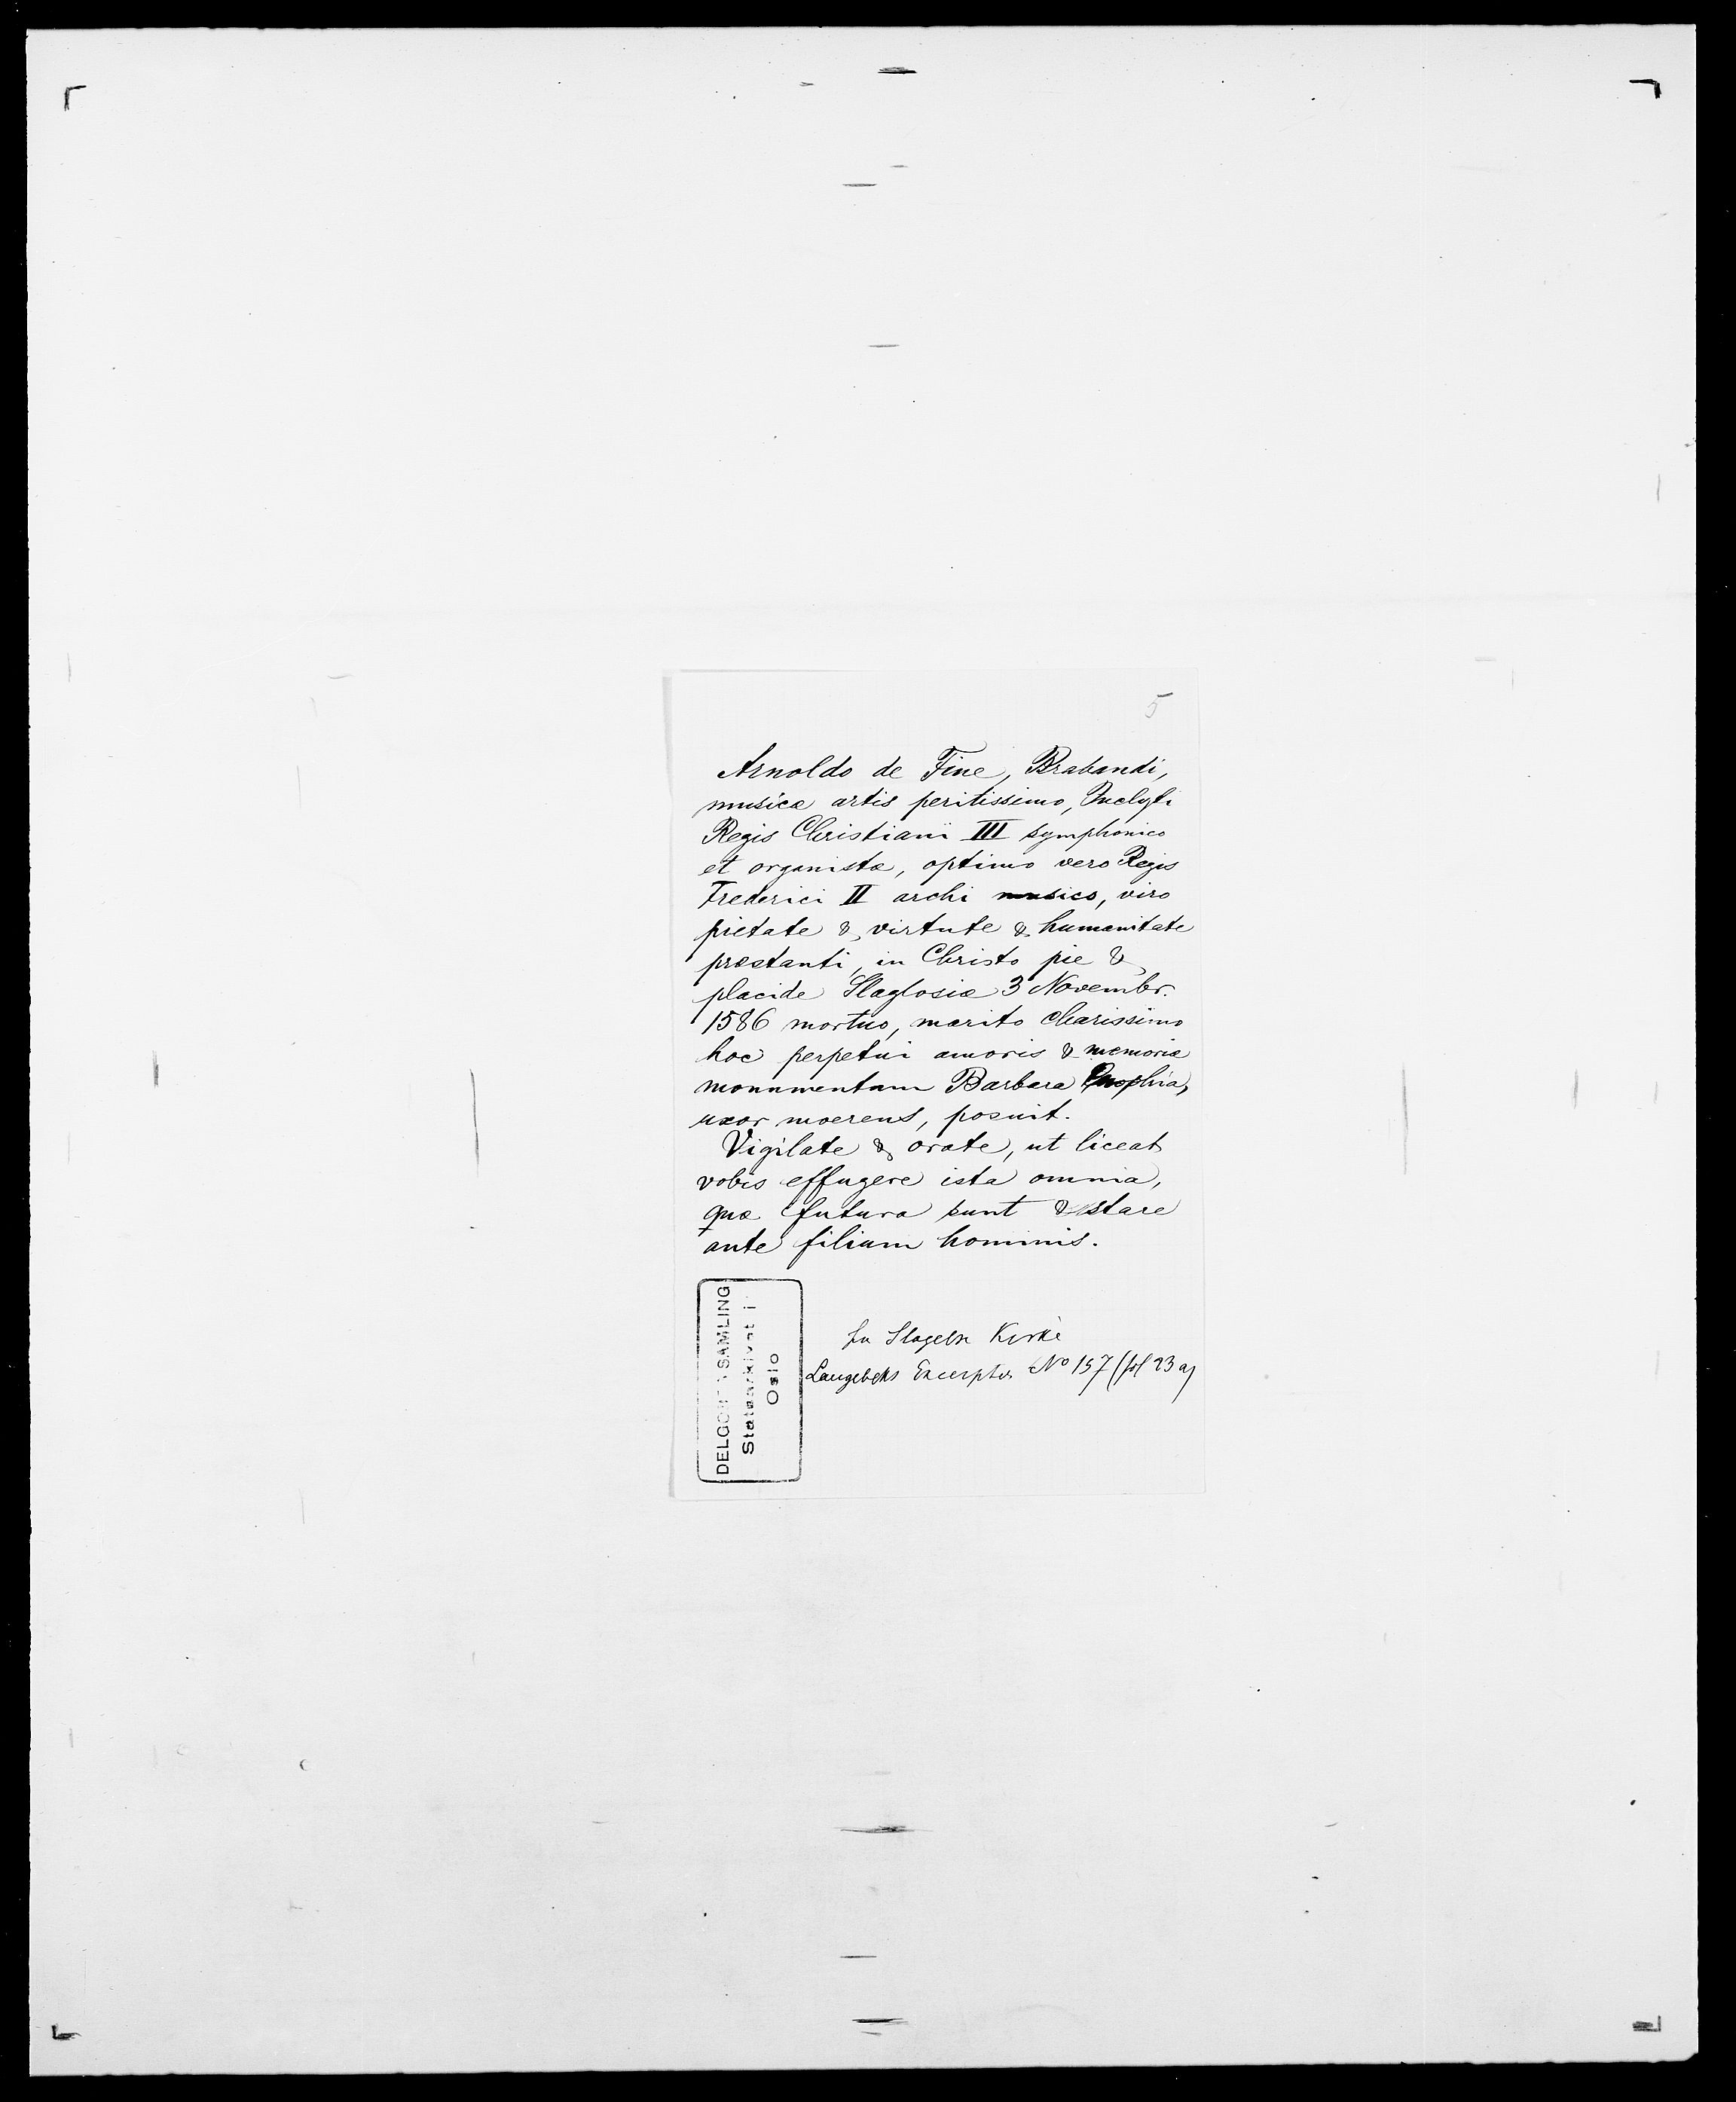 5
Arnoldo de Fine, Brabandi,
musicæ artis peritissimo, Inclyti
Regis Christiani III symphonico
et organistæ, optimo vero Regis
Frederici II archi musico, viro
pietate & virtute & humanitate
præstanti, in Christo pie &
placide Slaglosiæ 3 Novembr.
1586 mortuo, marito charissimo
hoc perpetui amoris & memoriæ
monumentum Barbara
uxor moerens, posuit.
Vigilate & orate, ut liceat
vobis effugere ista omnia,
quæ futura sunt & stare
ante filium hominis.
DELGOBE SAMLING
Statsarkivet i
Oslo
fra Slagelse Kirke
Langebeks Excerpter No 157 (fol 23 a)